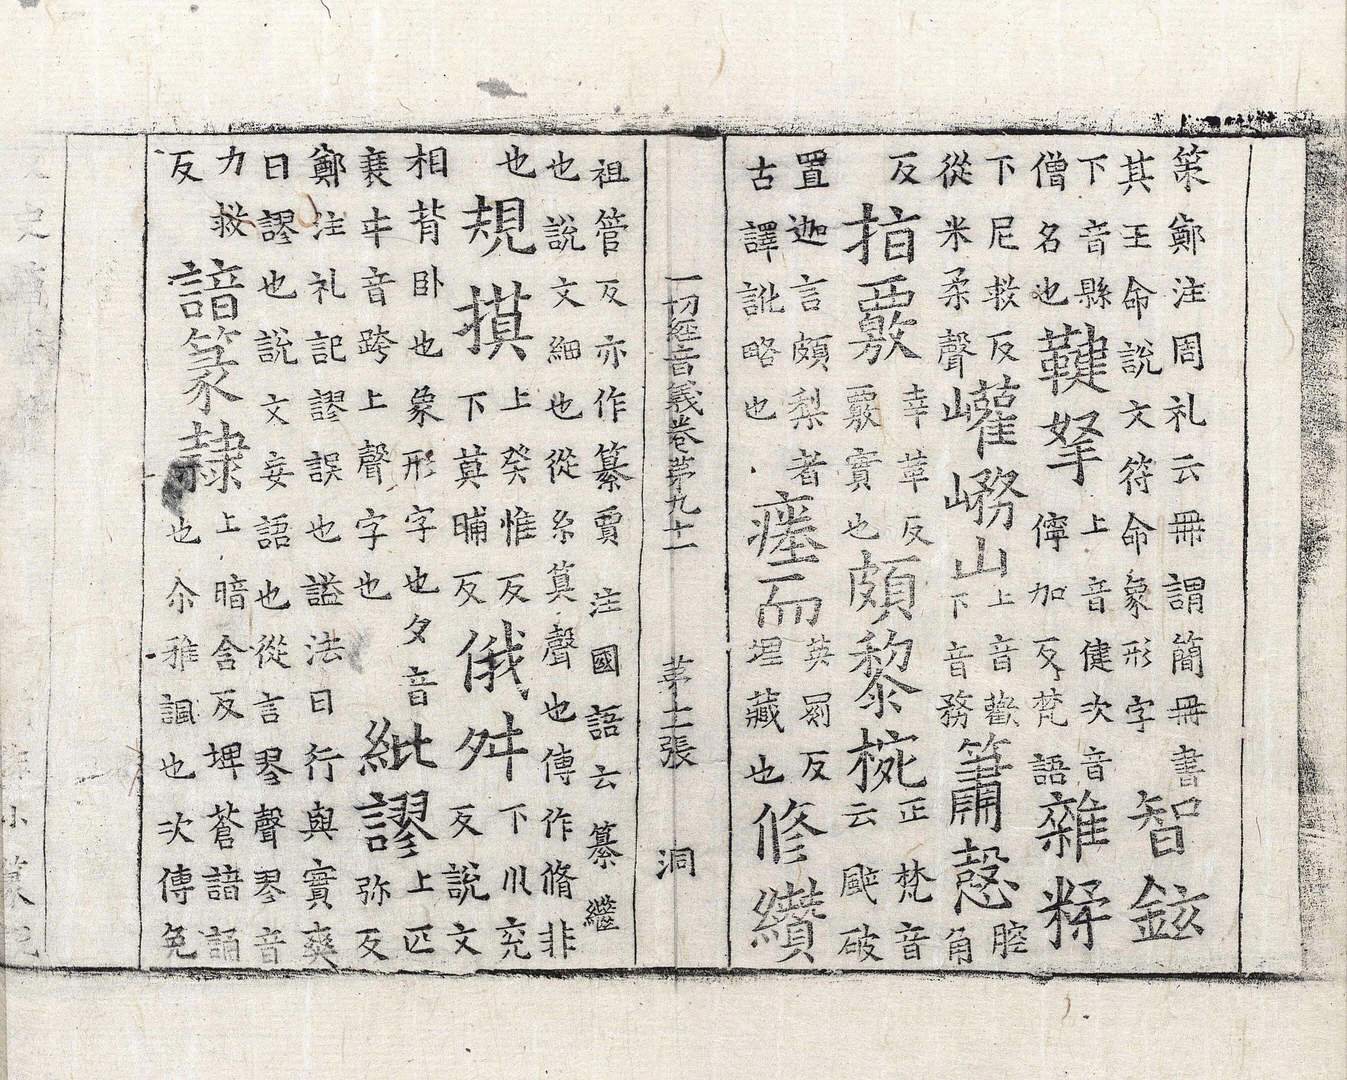 策鄭注周礼云冊謂簡冊書
其王命說文符命象形字
智鉉
下音縣
僧名也
鞬拏
上音健次音
儜加反梵語
雜糅
下尼救反
從米柔聲
巏嵍山
上音歡
下音務
簫愨
腔
角
反
揩覈
幸革反
覈實也
頗黎椀
正梵音
云颰破
置迦言頗梨者
古譯訛略也
瘞而
英罽反
埋藏也
修纘
一切經音義卷苐九十一 苐十二張 洞
祖管反亦作纂賈注國語云纂繼
也說文細也從糸算聲也傳作脩非
也
規摸
上癸惟反
下莫晡反
俄舛
下川兖
反說文
相背卧也象形字也夕音
衰㐄音跨上聲字也
紕謬
上匹
弥反
鄭注礼記謬誤也謚法曰行與實爽
曰謬也說文妄語也從言翏聲翏音
力救
反
諳篆隸
上暗含反埤蒼諳誦
也尒雅諷也次傳免